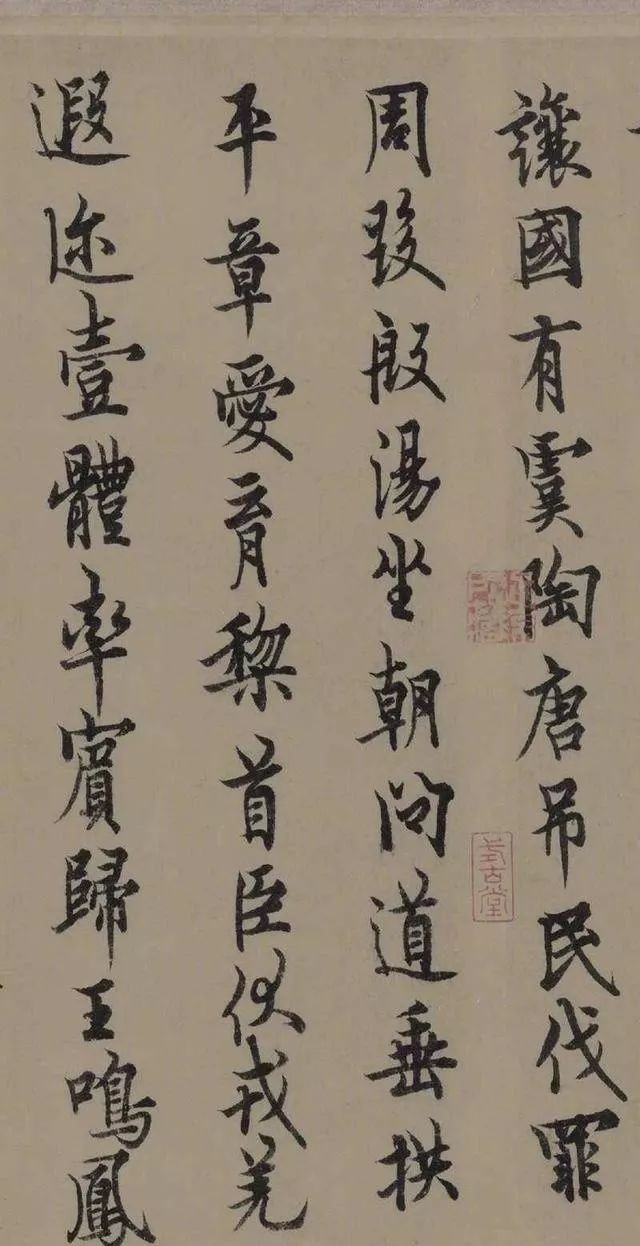 讓國有虞陶唐吊民伐罪
周發殷湯坐朝問道垂拱
平章愛育黎首臣伏戎羌
遐迩壹體率賓歸王鳴鳳
式古堂